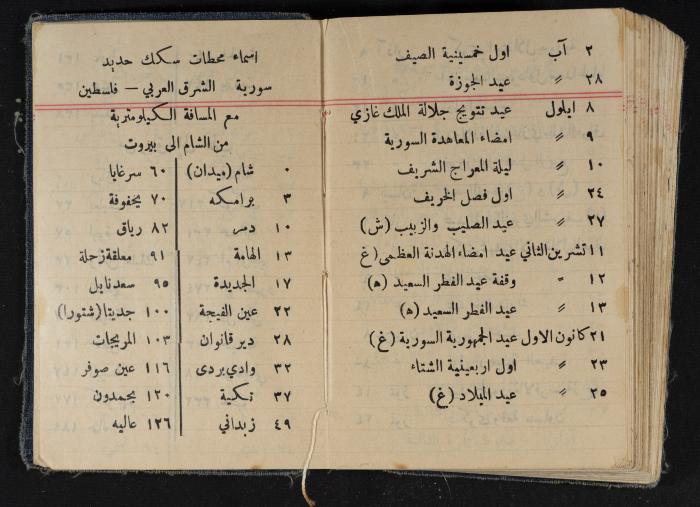 ٢ آب اول خمسينية الصيف
٢٨ 〃 عيد الجوزة
٨ ايلول عيد تتويج جلالة الملك غازي
٩ 〃 امضاء المعاهدة السورية
١٠ 〃 ليلة المعراج الشريف
٢٤ 〃 اول فصل الخريف
٢٧ 〃 عيد الصليب والزبيب (ش)
١١ تشرين الثاني عيد امضاء الهدنة العظمى (غ
١٢ 〃 وقفة عيد الفطر السعيد (ه)
١٣ 〃 عيد الفطر السعيد (ه)
٢١ كانون الاول عيد الجمهورية السورية (غ)
٢٣ 〃 اول اربعينية الشتاء
٢٥ 〃 عيد الميلاد (غ)
اسماء محطات سكك حديد
سورية الشرق العربي – فلسطين
مع المسافة الكيلومترية
من الشام الى بيروت
٠ شام (ميدان) ٦٠ سرغايا
٣ برامكه ٧٠ يحفوفة
١٠ دمر ٨٢ رياق
١٣ الهامة ٩١ معلقة زحلة
١٧ الجديدة ٩٥ سعدنايل
٢٢ عين الفيحة ١٠٠ جديتا (شتورا)
٢٨ دير قانوان ١٠٣ المريجات
٣٢ وادي بردى ١١٦ عين صوفر
٣٧ تكية ١٢٠ بحمدون
٤٩ زبداني ١٢٦ عاليه